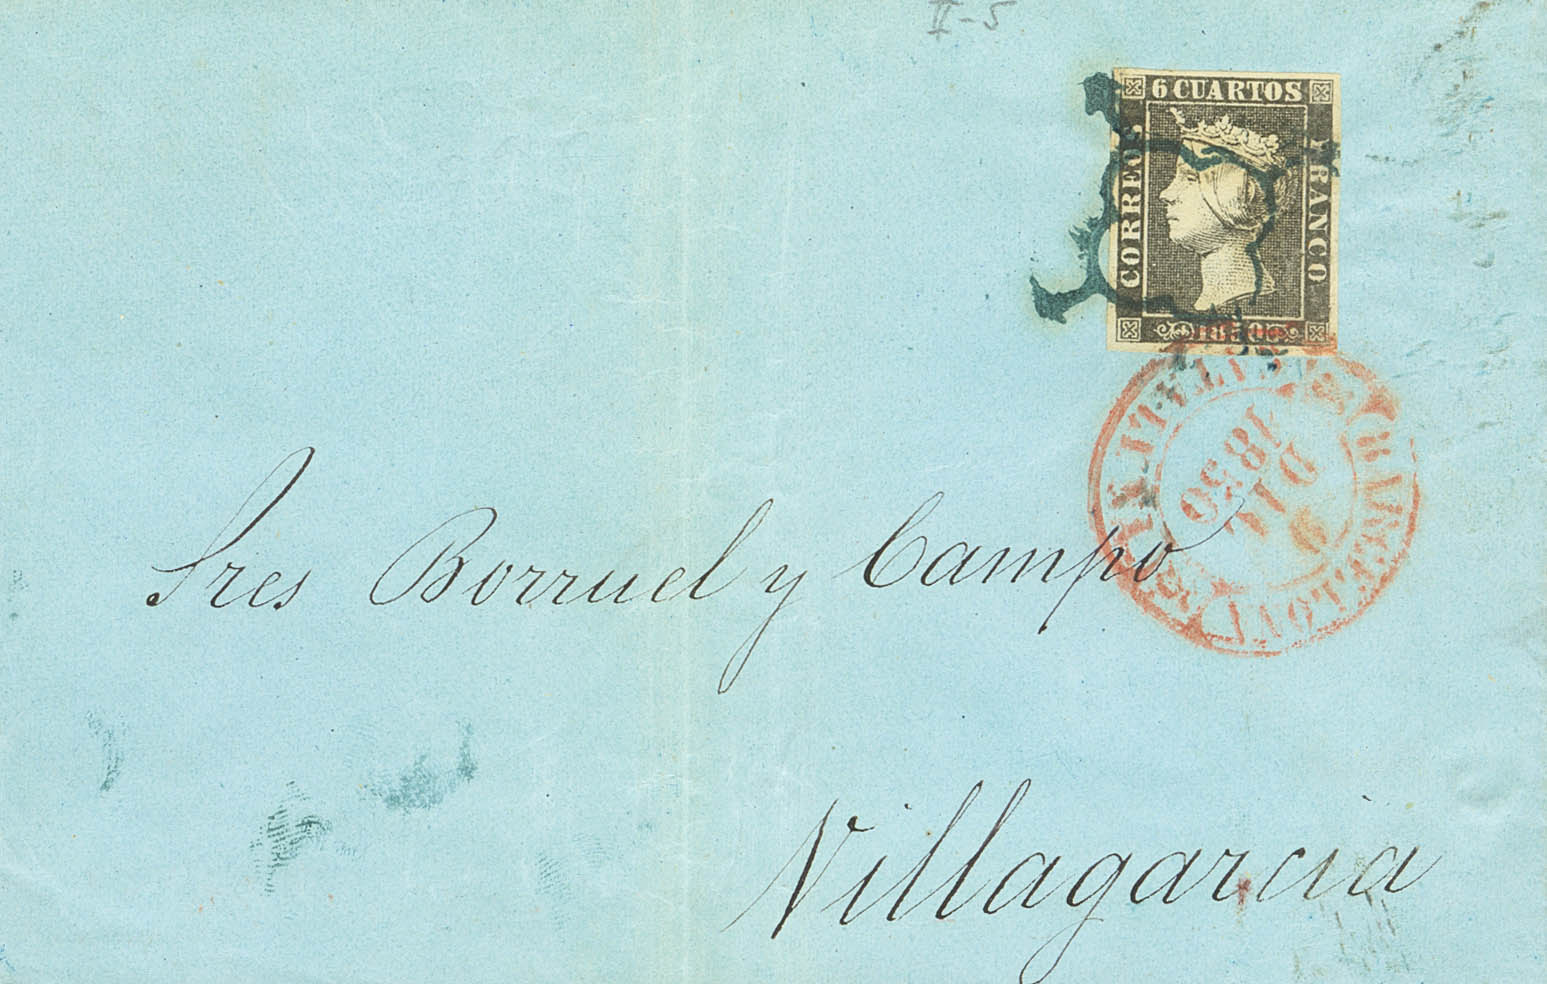 II-5
6 CUARTOS
CORREOS
FRANCO
1850
BARCELONA
DIC
1850
Sres Borruel y Campo
Villagarcia